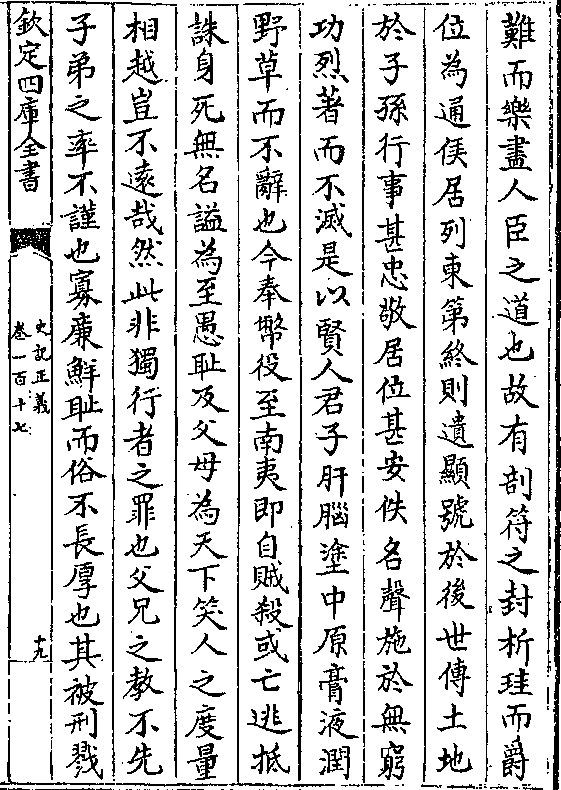 難而樂盡人臣之道也故有剖符之封析珪而爵
位為通侯居列東第終則遺顯號於後世傳土地
於子孫行事甚忠敬居位甚安佚名聲施於無窮
功烈著而不滅是以賢人君子肝腦塗中原膏液潤
野草而不辭也今奉幣役至南夷即自賊殺或亡逃抵
誅身死無名謚為至愚耻及父母為天下笑人之度量
相越豈不遠哉然此非獨行者之罪也父兄之教不先
子弟之率不謹也寡廉鮮耻而俗不長厚也其被刑戮
欽定四庫全書
史記正義
卷一百十七
十九